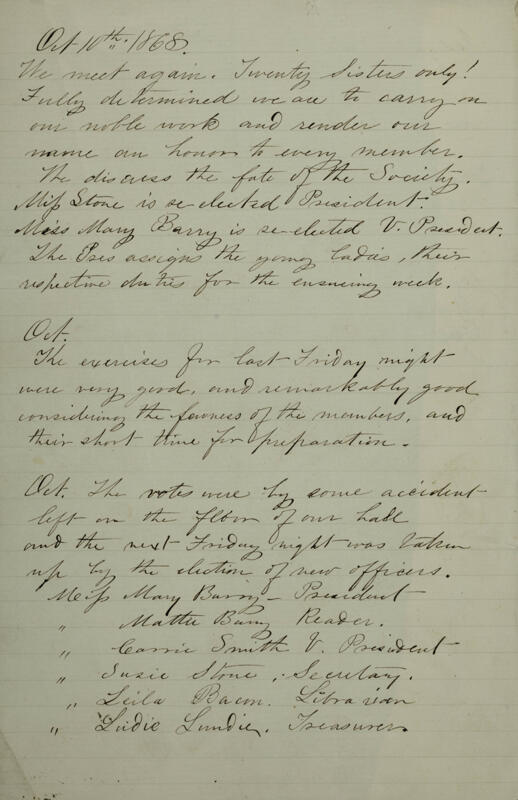 Oct 10th. 1868.
We meet again. Twenty Sisters only!
Fully determined we are to carry on
our noble work and render our
name an honor to every member.
We discuss the fate of the Society.
Miss Stone is re-elected President.
Miss Mary Barry is re-elected V. President.
The Pres assigns the young ladies, their
respective duties for the ensueing week.
Oct.
The exercises for last Friday night
were very good, and remarkably good
considering the fewness of the members, and
their short time for preparation.
Oct. The votes were by some accident
left on the floor of our hall
and the next Friday night was taken
up by the election of new officers.
Miss Mary Barry - President
" Mattie Barry Reader.
" Carrie Smith V. President
" Susie Stone, Secretary.
" Leila Bacon. Librarian
" Ludie Lundie. Treasurer.